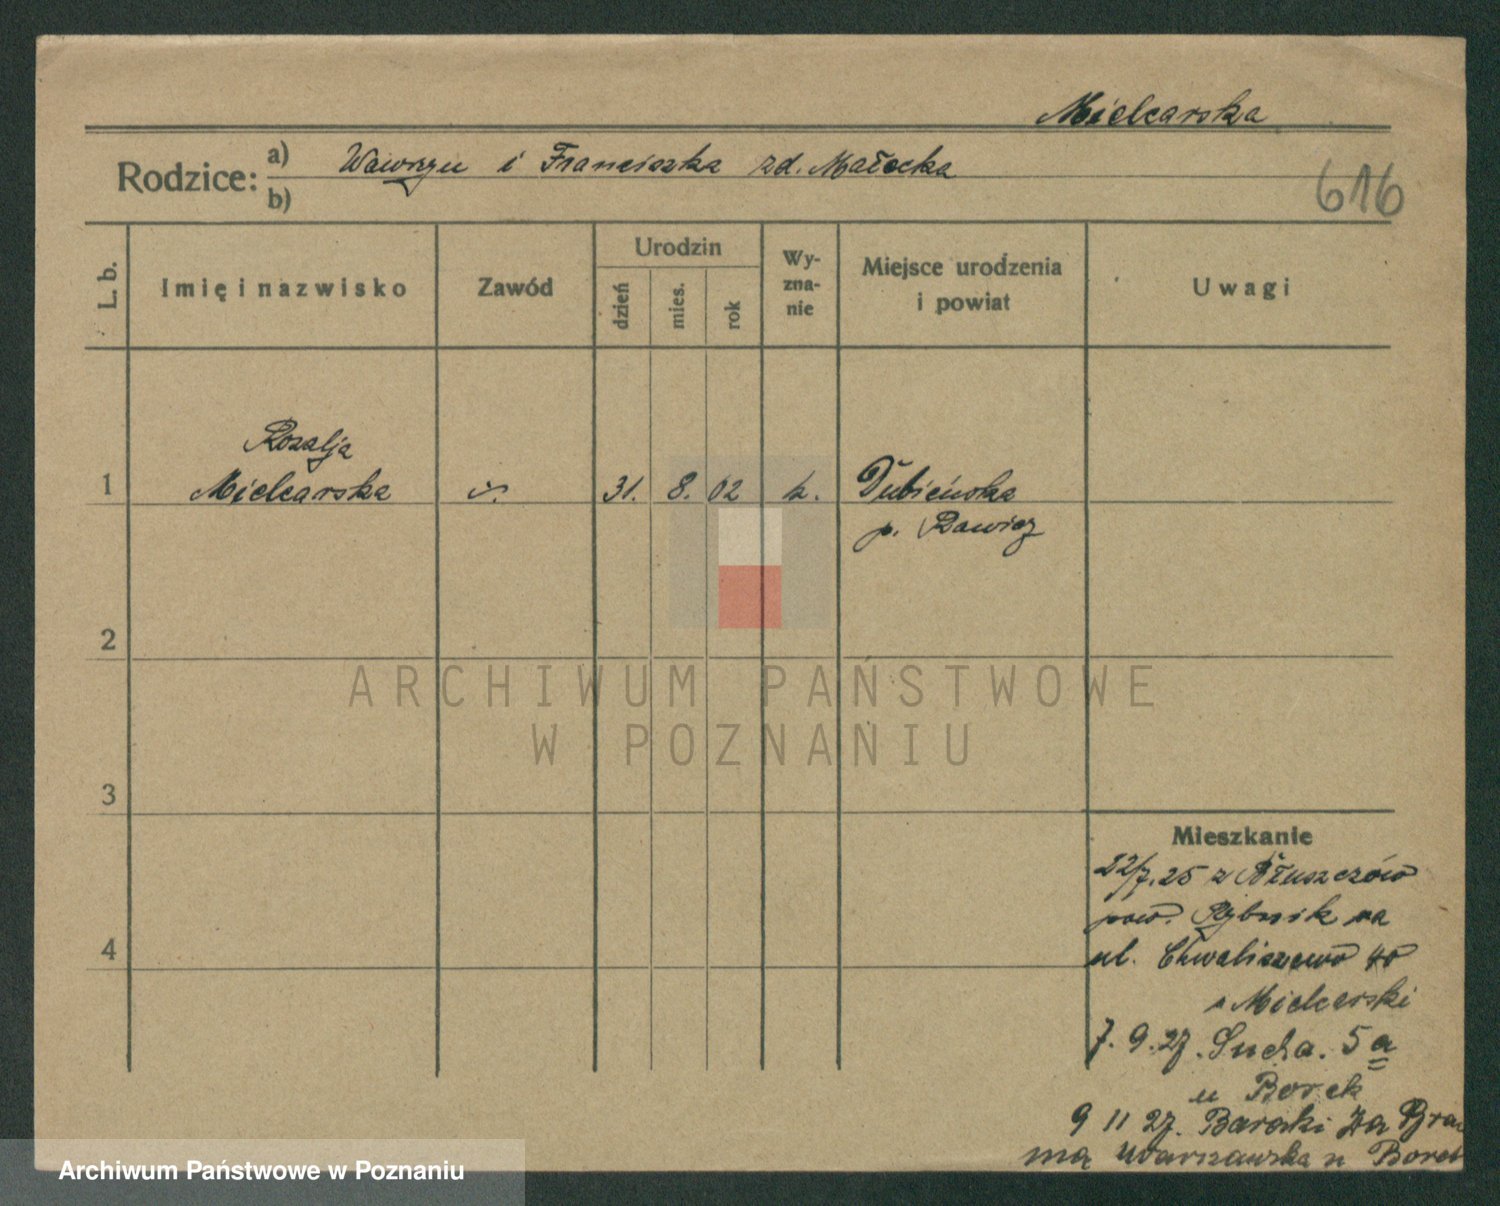 Mielcarska
Rodzice: a) Wawrzyn i Franciszka zd. Małecka
b)
616
L. b.
Imię i nazwisko
Zawód
Urodzin
dzień
mies.
rok
Wy-
zna-
nie
Miejsce urodzenia
i powiat
Uwagi
Rozalja
1 Mielcarska 31. 8. 02 k. Dubieńska
p. Rawicz
2
ARCHIWUM PAŃSTWOWE
W POZNANIU
3
Mieszkanie
22/7.25 z Błuszczów
pow. Rybnik na
4
ul. Chwaliszewo 40
Mielcarski
7. 9. 27. Sucha. 5a
u Borek
9 11 27. Baraki Za Bra
mą Warszawska u Borek
Archiwum Państwowe w Poznaniu